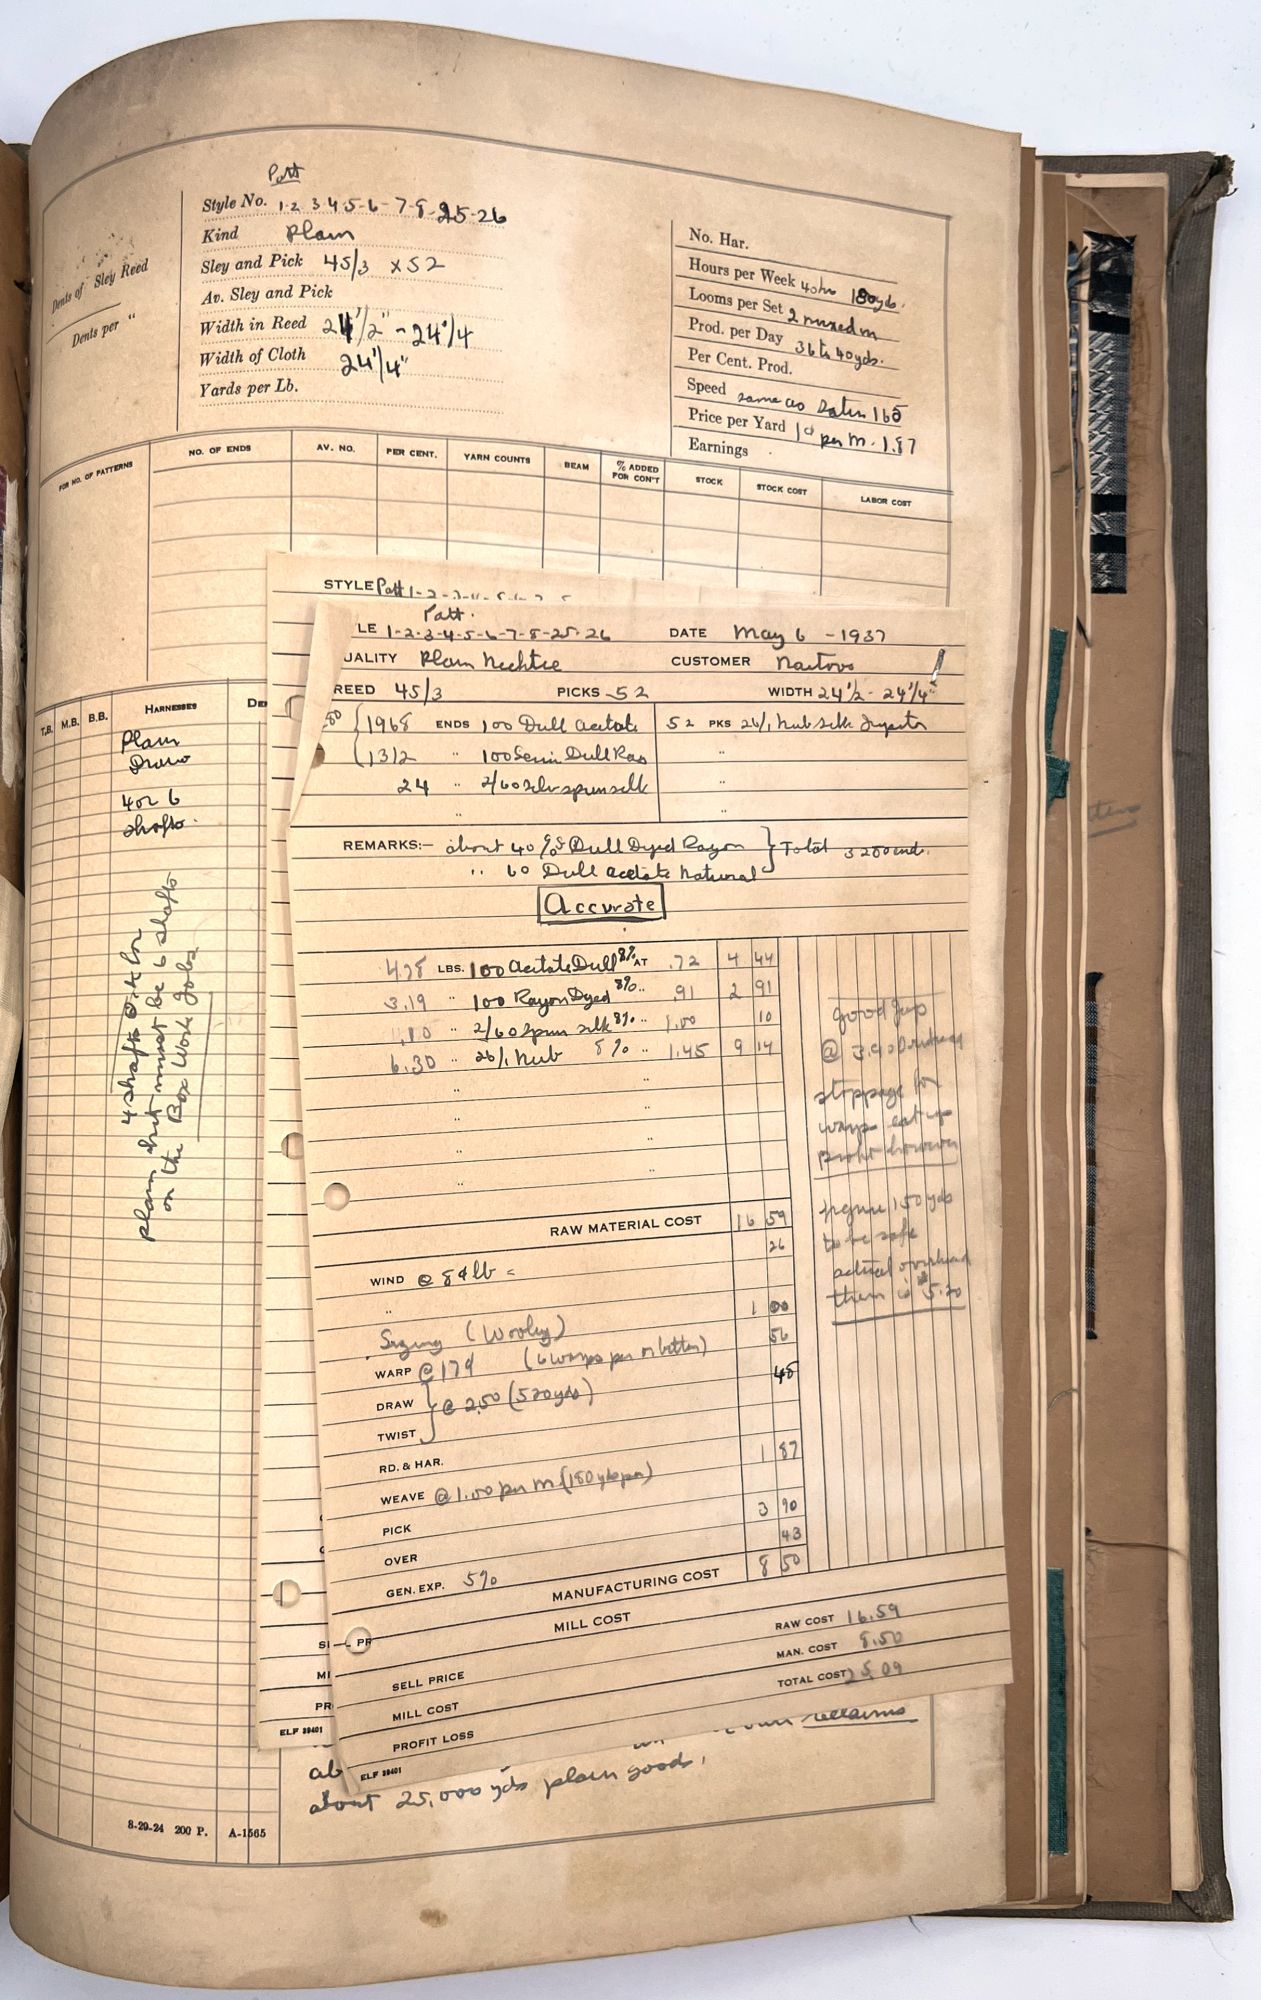 Patt
Style No. 1-2 3-4-5-6-7-8-25-26
Kind Plain
Sley and Pick 45/3 x 52
Av. Sley and Pick
Width in Reed 24 1/2" - 24 1/4
Width of Cloth 24 1/4"
Yards per Lb.
Dents of Sley Reed
Dents per "
No. Har.
Hours per Week 40 hrs 180 yds.
Looms per Set 2 mixed in
Prod. per Day 36 to 40 yds.
Per Cent. Prod.
Speed same as Satin 165
Price per Yard 1¢ per M. 1.87
Earnings
FOR NO. OF PATTERNS NO. OF ENDS AV. NO. PER CENT. YARN COUNTS BEAM % ADDED FOR CON'T STOCK STOCK COST LABOR COST
STYLE Patt 1-2-3-4-5-6-7-8
T.B. M.B. B.B. HARNESSES
Plain
Draw
4 or 6
shafts.
4 shafts O.K. for
plain but must be 6 shafts
on the Box Work Jobs
Patt.
LE 1-2-3-4-5-6-7-8-25-26 DATE May 6 - 1937
UALITY Plain Necktie CUSTOMER
REED 45/3 PICKS 52 WIDTH 24 1/2 - 24 1/4"
80 1968 ENDS 100 Dull Acetate 52 PKS 26/1 Nub silk
1312 " 100 Semi Dull Ray "
24 " 2/60 spun silk "
"
REMARKS:- about 40 % Dull Dyed Rayon Total 3280 ends.
" 60 Dull Acetate Natural
Accurate
4.78 LBS. 100 Acetate Dull 8% AT .72 4 44
3.19 " 100 Rayon Dyed 8% " .91 2 91
" 2/60 Spun silk 8% " 1.00 10
6.30 " 26/1 Nub 8% " 1.45 9 14
" "
" "
" "
" "
good
@ 3.90
stoppage for
warps eat up
profit however
figure 150 yds
to be safe
actual overhead
then is $5.20
RAW MATERIAL COST 16 59
WIND @ 8¢ lb = 26
"
Sizing (Wooley) 1 00
WARP @ 17¢ (6 warps per or better) 56
DRAW @ 2.50 (520 yds) 48
TWIST
RD. & HAR.
WEAVE @ 1.00 per M (180 yds per) 1 87
PICK
OVER 3 90
GEN. EXP. 5% 43
MANUFACTURING COST 8 50
MILL COST
RAW COST 16.59
MAN. COST 8.50
TOTAL COST 25.09
SELL PRICE
MILL COST
PROFIT LOSS
ELF 39401
PR
MI
PR
ELF 39401
ab
about 25,000 yds plain goods.
8-29-24 200 P. A-1565